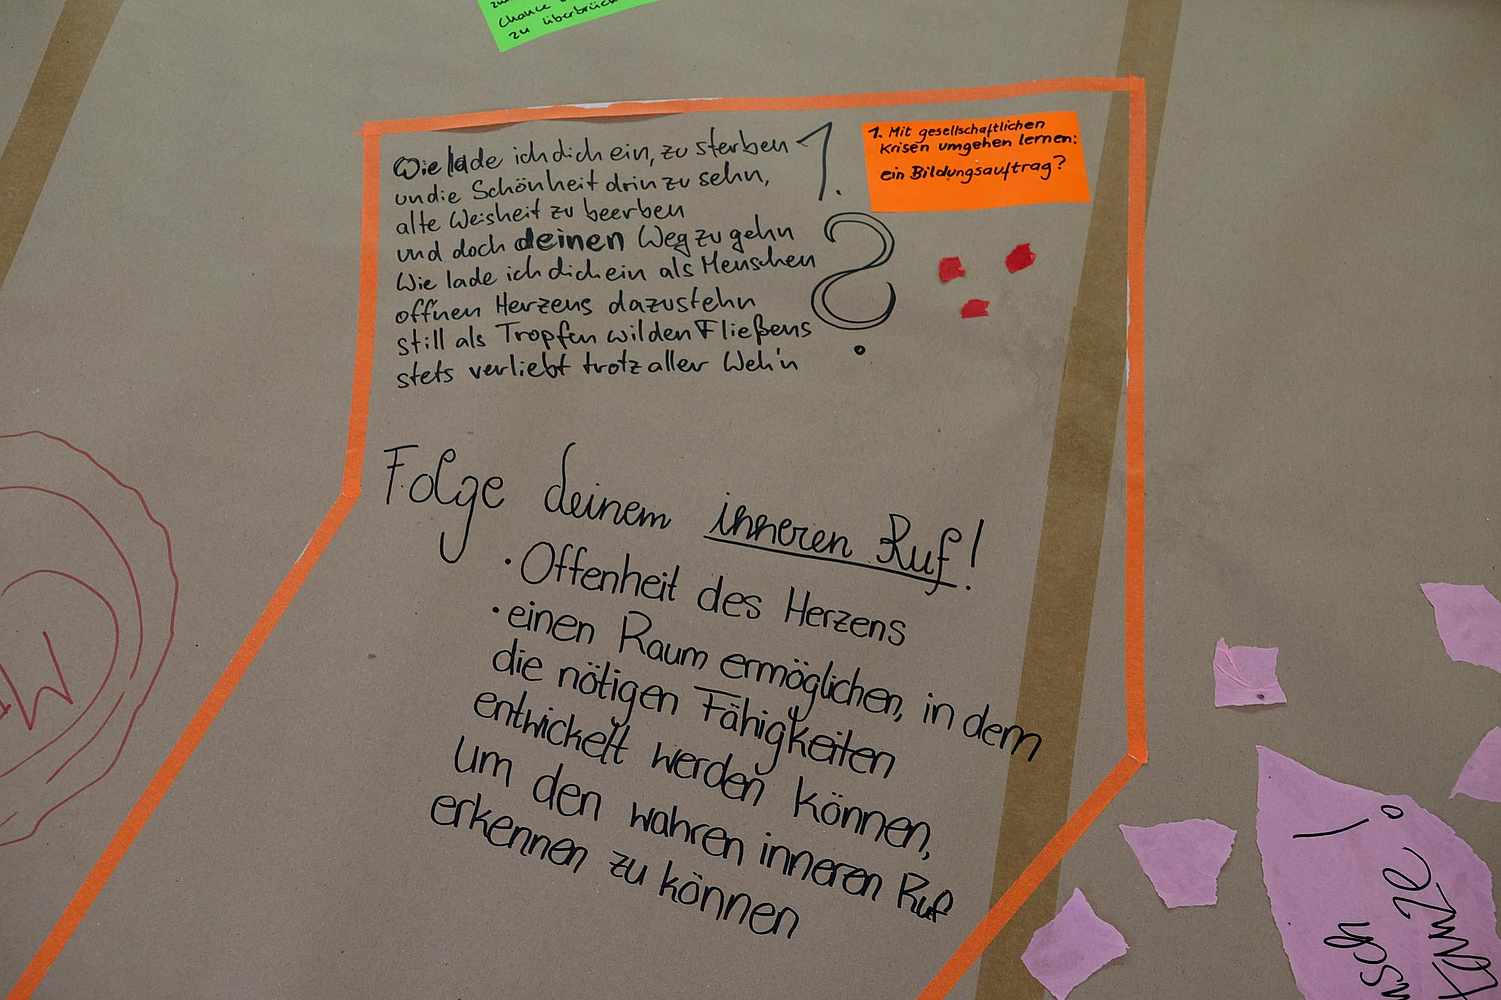 Chance
zu überbrück
Wie lade ich dich ein, zu sterben
und die Schönheit drin zu sehn,
alte Weisheit zu beerben
und doch deinen Weg zu gehn
Wie lade ich dich ein als Menschen
offnen Herzens dazustehn
still als Tropfen wilden Fließens
stets verliebt trotz aller Weh'n
1.
?
1. Mit gesellschaftlichen
Krisen umgehen lernen:
ein Bildungsauftrag?
Folge deinem inneren Ruf!
• Offenheit des Herzens
• einen Raum ermöglichen, in dem
die nötigen Fähigkeiten
entwickelt werden können,
um den wahren inneren Ruf
erkennen zu können